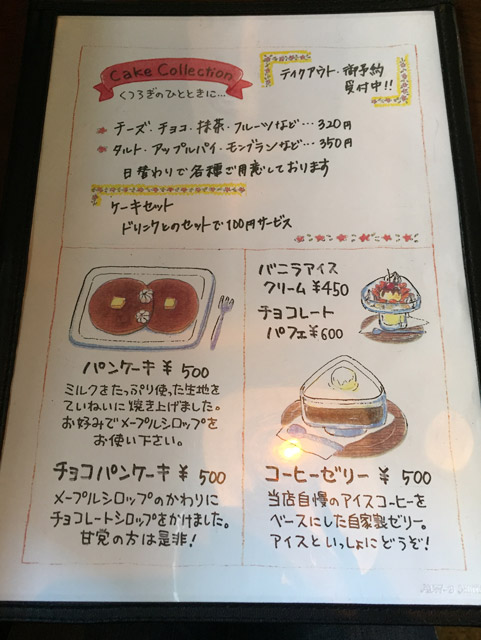 Cake Collection
くつろぎのひとときに…
テイクアウト・御予約
受付中!!
チーズ・チョコ・抹茶・フルーツなど…320円
タルト・アップルパイ・モンブランなど…350円
日替わりで各種ご用意しております
ケーキセット
ドリンクとのセットで100円サービス
バニラアイス
クリーム ¥450
チョコレート
パフェ ¥600
パンケーキ ¥500
ミルクをたっぷり使った生地を
ていねいに焼き上げました。
お好みでメープルシロップを
お使い下さい。
チョコパンケーキ ¥500
メープルシロップのかわりに
チョコレートシロップをかけました。
甘党の方は是非!
コーヒーゼリー ¥500
当店自慢のアイスコーヒーを
ベースにした自家製ゼリー。
アイスといっしょにどうぞ!